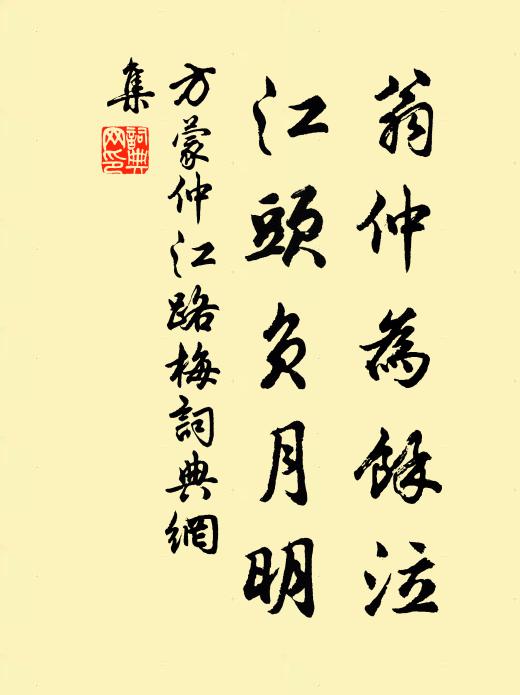 翁仲為餘泣
江頭負月明
方蒙仲江路梅詞典網
集
詞典網印